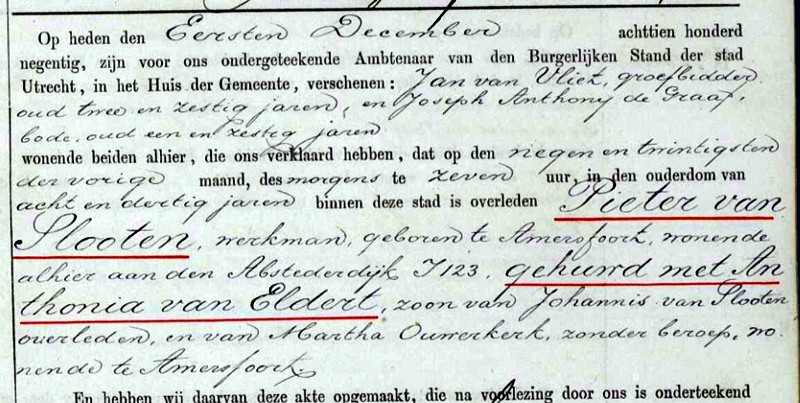 Op heden den Eersten December achttien honderd
negentig, zijn voor ons ondergeteekende Ambtenaar van den Burgerlijken Stand der stad
Utrecht, in het Huis der Gemeente, verschenen: Jan van Vliet, groefbidder
oud twee en zestig jaren, en Joseph Anthony de Graaf,
bode, oud een en zestig jaren
wonende beiden alhier, die ons verklaard hebben, dat op den negen en twintigsten
der vorige maand, des morgens te zeven uur, in den ouderdom van
acht en dertig jaren binnen deze stad is overleden Pieter van
Slooten, werkman, geboren te Amersfoort, wonende
alhier aan den Abstederdijk I 123, gehuwd met An
thonia van Eldert, zoon van Johannis van Slooten
overleden, en van Martha Ouwerkerk, zonder beroep, wo.
nende te Amersfoort.
En hebben wij daarvan deze akte opgemaakt, die na voorlezing door ons is onderteekend